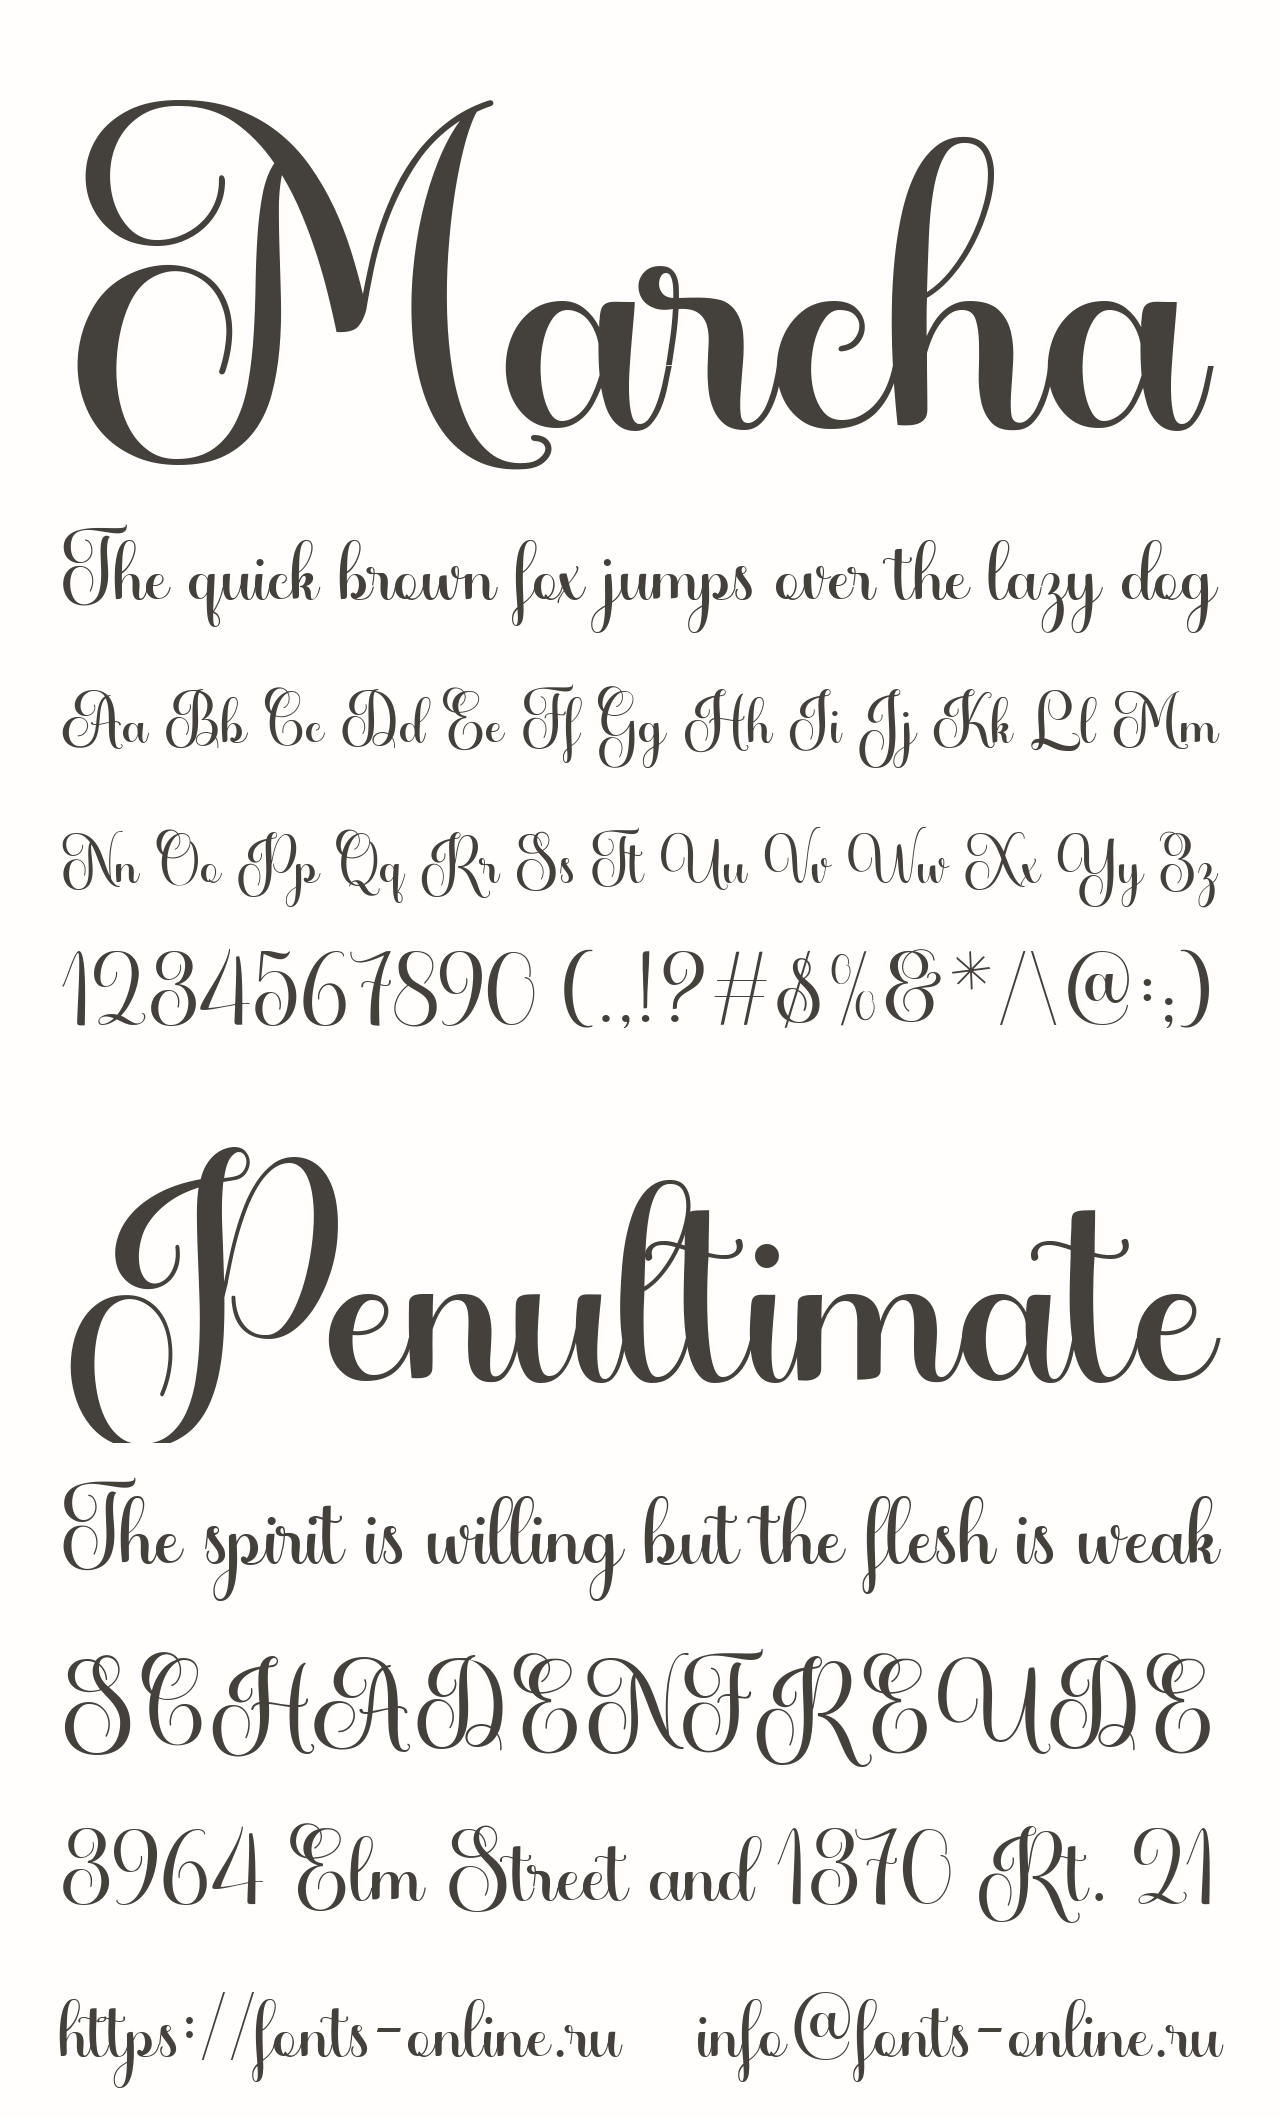 Marcha
The quick brown fox jumps over the lazy dog
Aa Bb Cc Dd Ee Ff Gg Hh Ii Jj Kk Ll Mm
Nn Oo Pp Qq Rr Ss Tt Uu Vv Ww Xx Yy Zz
1234567890 (.,!?#$%&*/\@:;)
Penultimate
The spirit is willing but the flesh is weak
SCHADENFREUDE
3964 Elm Street and 1370 Rt. 21
https://fonts-online.ru info@fonts-online.ru